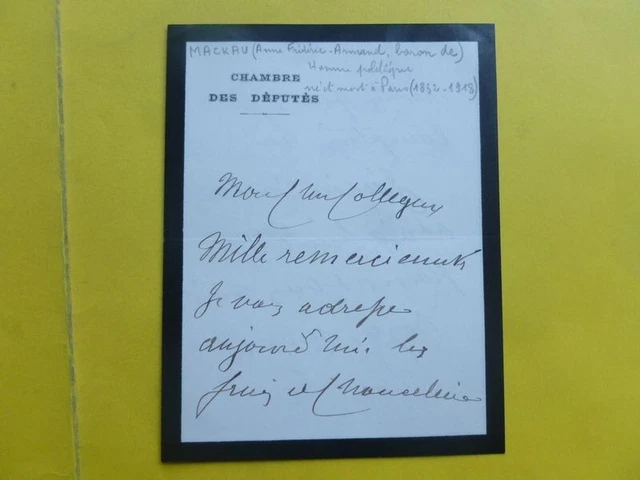 MACKAU (Anne Frédéric-Armand, baron de)
Homme politique
né et mort à Paris (1832-1918)
CHAMBRE
DES DÉPUTÉS
Collègue
Mille remerciements
Je vous adresse
aujourd'hui les
frais de Chancellerie